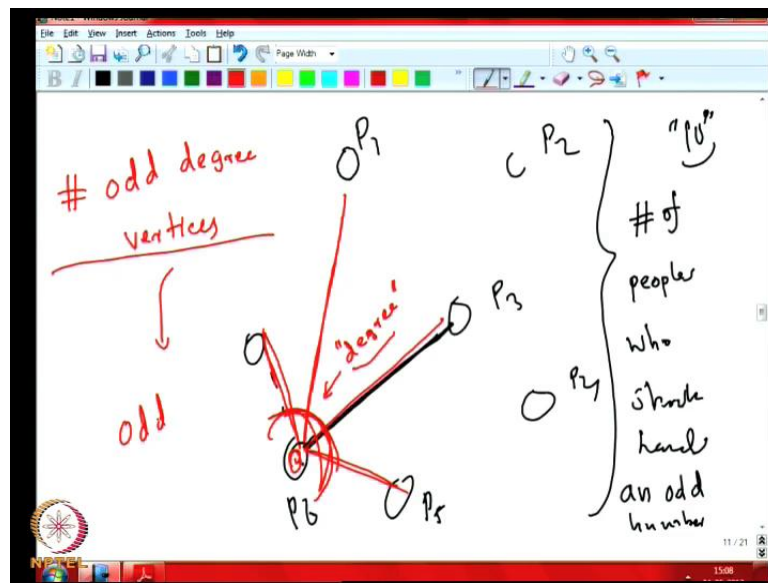 File Edit View Insert Actions Tools Help
Page Width
B I
# odd degree
vertices
odd
"degree"
P1
P2
P3
P4
P5
P6
"10"
# of
people
who
shook
hands
an odd
number
11 / 21
NPTEL
15:08